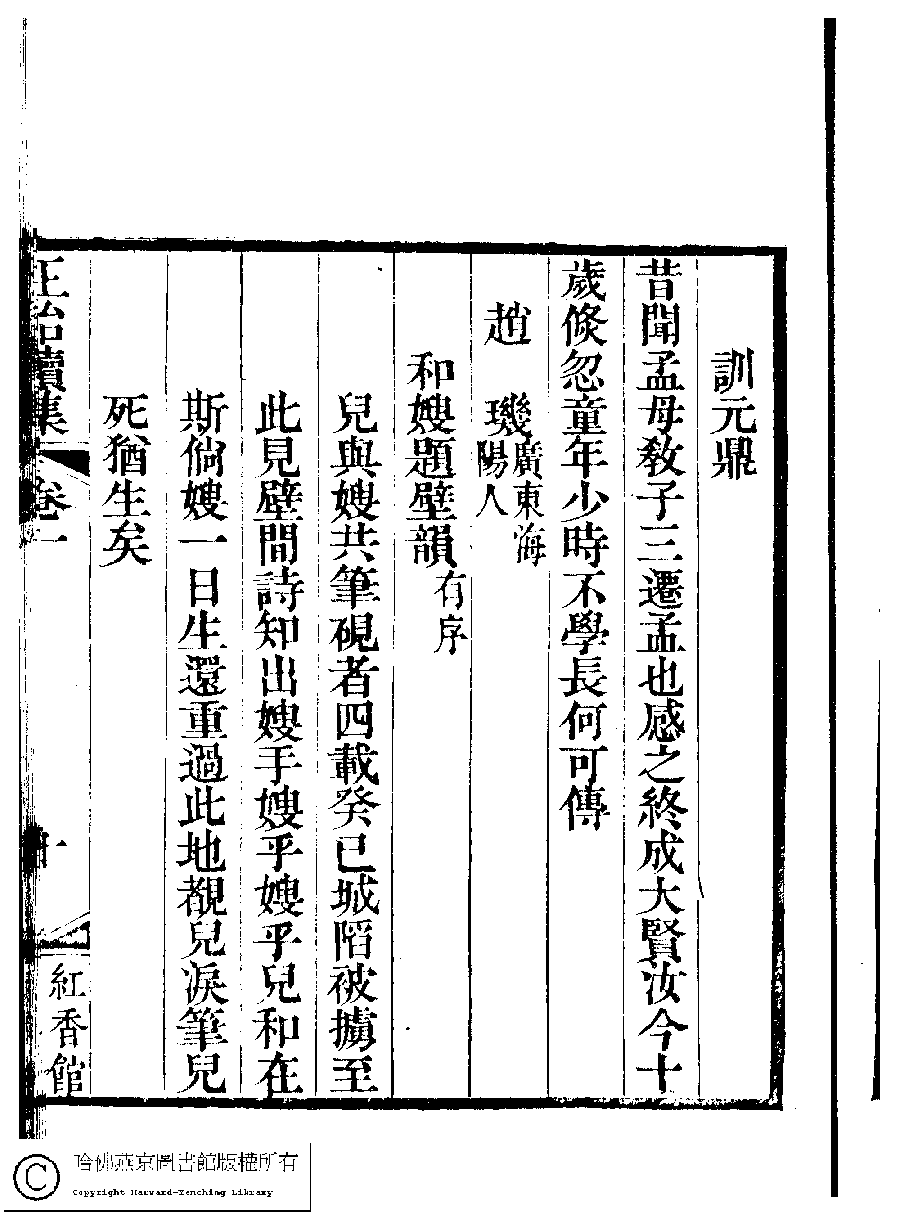 訓元鼎
昔聞孟母敎子三遷孟也感之終成大賢汝今十
歲倐忽童年少時不學長何可傳
趙璣廣東海
陽人
和嫂題壁韻有序
兒與嫂共筆硯者四載癸巳城陷被擄至
此見壁間詩知出嫂手嫂乎嫂乎兒和在
斯倘嫂一日生還重過此地覩兒淚筆兒
死猶生矣
續集
卷一
十
紅香館
哈佛燕京圖書館版權所有
Copyright Harvard-Yenching Library